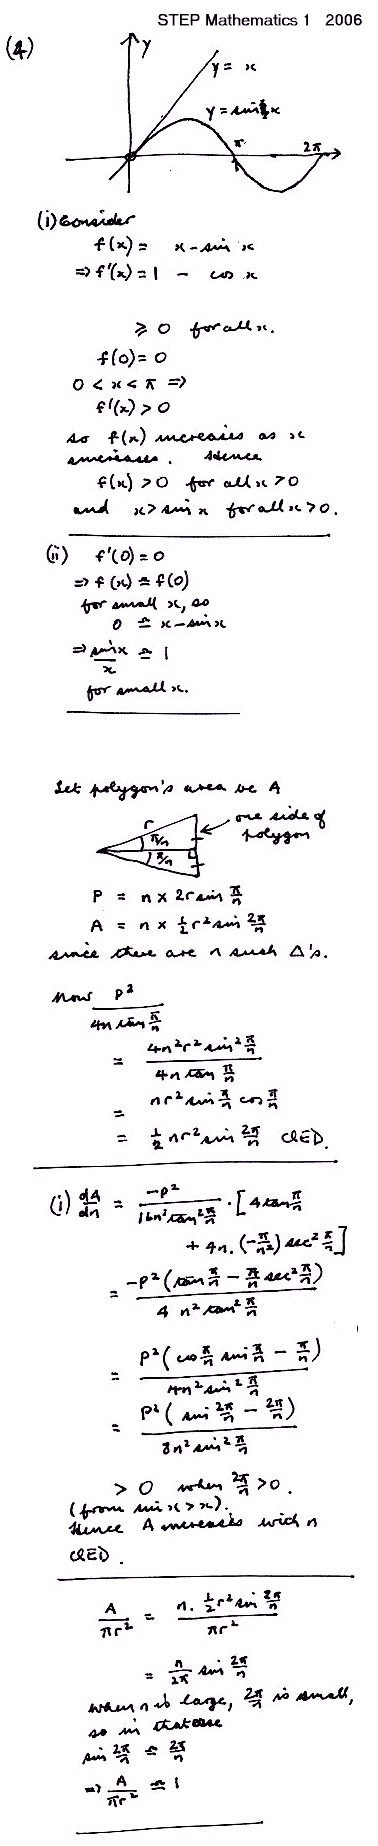 STEP Mathematics 1 2006
(4)
y
y = x
y = sin x
π
2π
(i) Consider
f(x) = x - sin x
⇒ f'(x) = 1 - cos x
≥ 0 for all x.
f(0) = 0
0 < x < π ⇒
f'(x) > 0
so f(x) increases as x
increases. Hence
f(x) > 0 for all x > 0
and x > sin x for all x > 0.
(ii) f'(0) = 0
⇒ f(x) ≈ f(0)
for small x, so
0 ≈ x - sin x
⇒ sin x / x ≈ 1
for small x.
Let polygon's area be A
r
π/n
π/n
one side of
polygon
P = n × 2r sin π/n
A = n × ½ r² sin 2π/n
since there are n such Δ's.
Now P² / 4n tan π/n
= 4n²r² sin² π/n / 4n tan π/n
= nr² sin π/n cos π/n
= ½ nr² sin 2π/n QED.
(i) dA/dn = -P² / 16n² tan² π/n · [4 tan π/n
+ 4n. (-π/n²) sec² π/n]
= -P² (tan π/n - π/n sec² π/n) / 4 n² tan² π/n
= P² (cos π/n sin π/n - π/n) / 4n² sin² π/n
= P² (sin 2π/n - 2π/n) / 8n² sin² π/n
> 0 when 2π/n > 0.
(from sin x > x).
Hence A increases with n
QED.
A / πr² = n. ½ r² sin 2π/n / πr²
= n/2π sin 2π/n
when n is large, 2π/n is small,
so in that case
sin 2π/n ≈ 2π/n
⇒ A / πr² ≈ 1